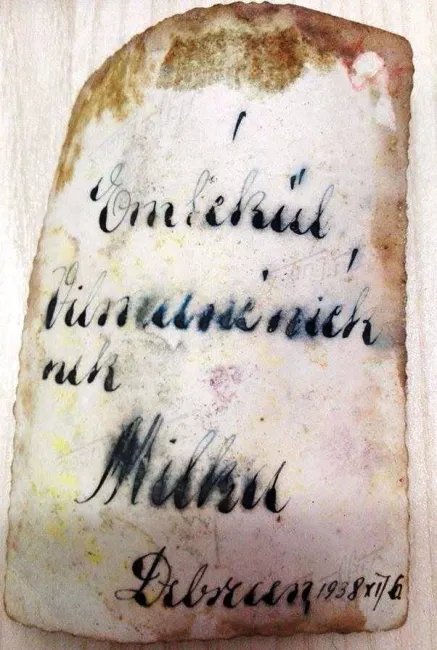 Emlékül
Vilmanéniék
nek
Milka
Debrecen, 1938 XI/6